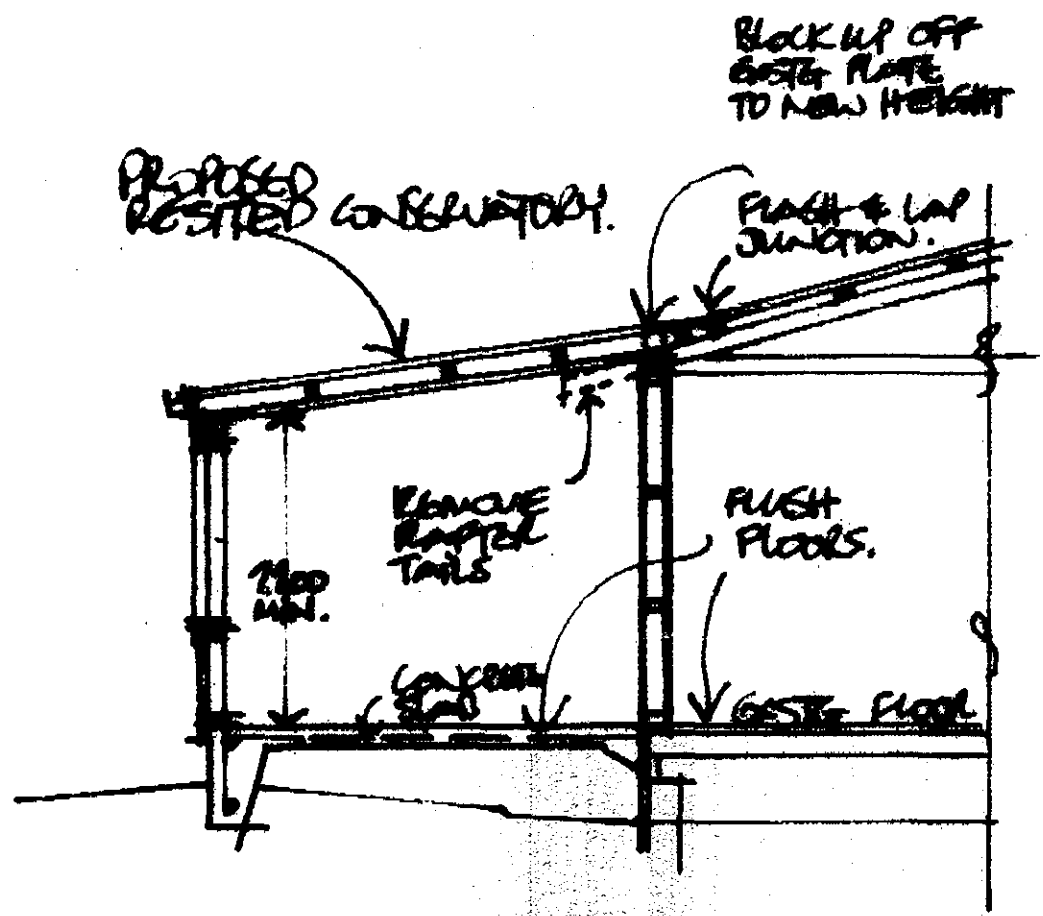 BLOCK UP OFF
EXSTG PLATE
TO NEW HEIGHT
PROPOSED
RESITED CONSERVATORY.
FLASH & LAP
JUNCTION.
REMOVE
RAFTER
TAILS
FLUSH
FLOORS.
MIN.
CONCRETE
SLAB
EXSTG FLOOR